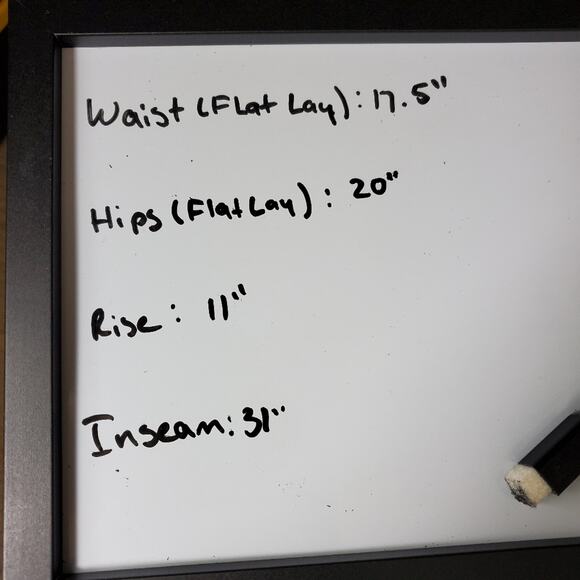 Waist (Flat Lay): 17.5"
Hips (Flat Lay): 20"
Rise: 11"
Inseam: 31"